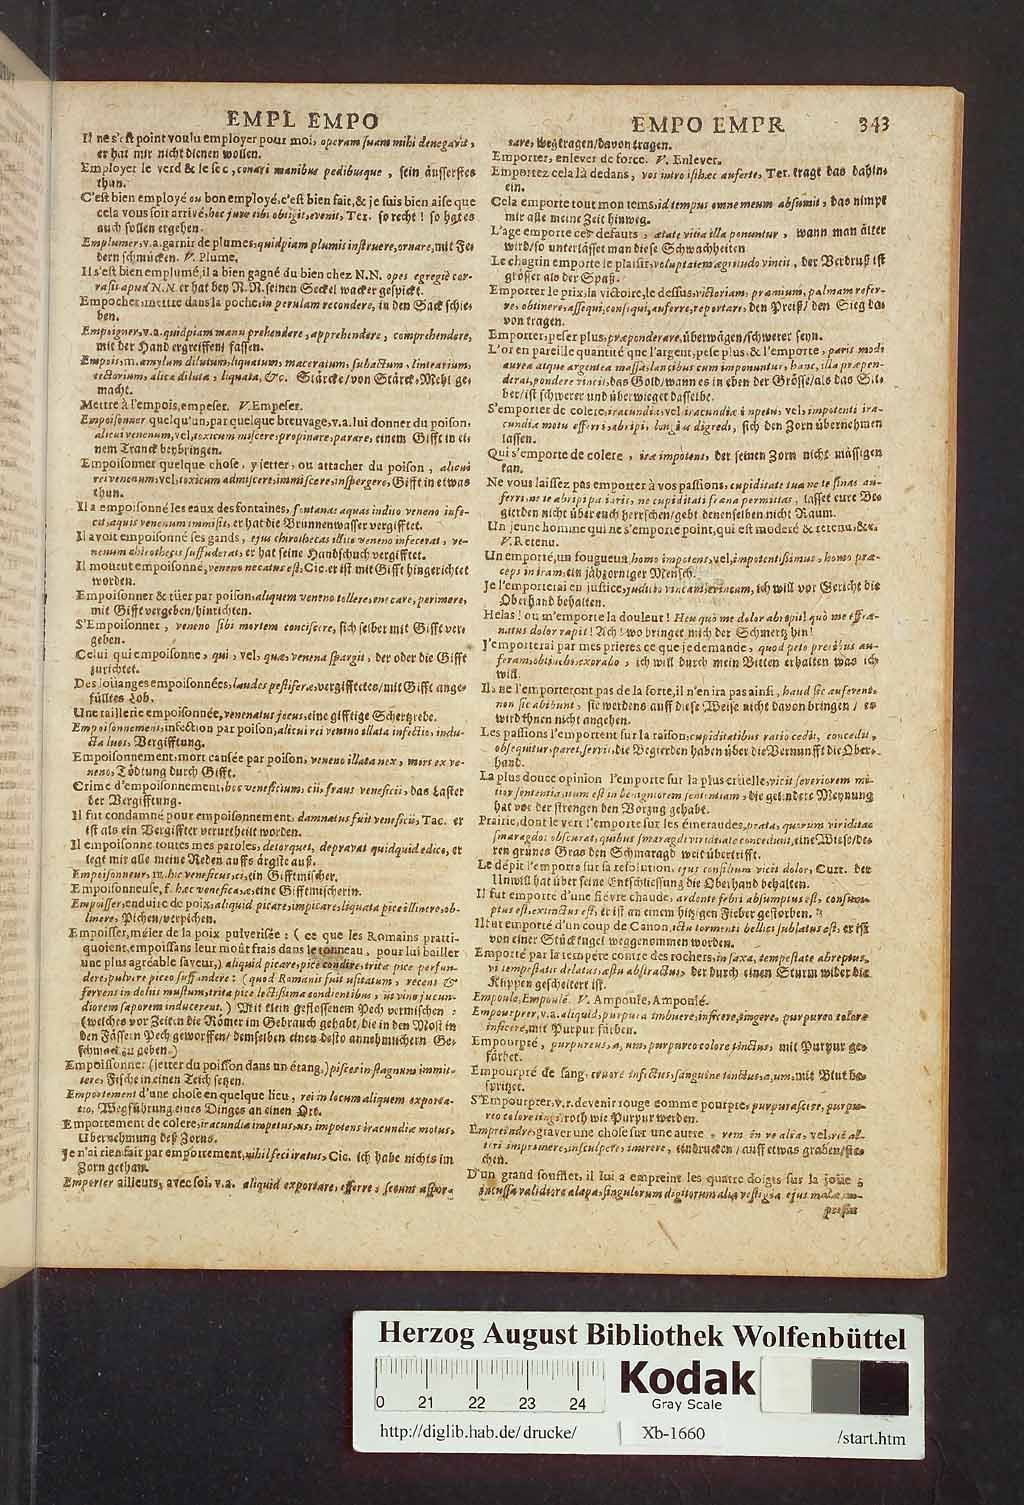 EMPL EMPO
Il ne s'est point voulu employer pour moi, operam suam mihi denegavit,
er hat mir nicht dienen wollen.
Employer le verd & le sec, conari manibus pedibusque, sein äusserstes
thun.
C'est bien employé ou bon employé, c'est bien fait, & je suis bien aise que
cela vous soit arrivé, hoc jure tibi obtigit, evenit, Ter. so recht! so hat es
auch sollen ergehen.
Emplumer, v.a. garnir de plumes, quidpiam plumis instruere, ornare, mit Fe-
dern schmücken. V. Plume.
Il s'est bien emplumé, il a bien gagné du bien chez N.N. opes egregiè cor-
rasit apud N.N. er hat bey N.N. seinen Seckel wacker gespickt.
Empocher, mettre dans la poche, in perulam recondere, in den Sack schie-
ben.
Empoigner, v.a. quidpiam manu prehendere, apprehendere, comprehendere,
mit der Hand ergreiffen/ fassen.
Empois, m. amylum dilutum, liquatum, maceratum, subactum, lintearium,
tectorium, alica diluta, liquata, &c. Stärcke/ von Stärck-Mehl ge-
macht.
Mettre à l'empois, empeser. V. Empeser.
Empoisonner quelqu'un, par quelque breuvage, v.a. lui donner du poison,
alicui venenum, vel, toxicum miscere, propinare, parare, einem Gifft in ei-
nem Tranck beybringen.
Empoisonner quelque chose, y jetter, ou attacher du poison, alicui
rei venenum, vel, toxicum admiscere, immiscere, inspergere, Gifft in etwas
thun.
Il a empoisonné les eaux des fontaines, fontanas aquas induo veneno infe-
cit, aquis venenum immisit, er hat die Brunnenwasser vergifftet.
Il avoit empoisonné ses gands, ejus chirothecas illius veneno infecerat, ve-
nenum chirothecis suffuderat, er hat seine Handschuch vergifftet.
Il mourut empoisonné, veneno necatus est, Cic. er ist mit Gifft hingerichtet
worden.
Empoisonner & tüer par poison, aliquem veneno tollere, enecare, perimere,
mit Gifft vergeben/ hinrichten.
S'Empoisonner, veneno sibi mortem conciscere, sich selber mit Gifft ver-
geben.
Celui qui empoisonne, qui, vel, quæ, venena spargit, der oder die Gifft
zurichtet.
Des loüanges empoisonnées, laudes pestiferæ, vergifftetes/ mit Gifft ange-
fülltes Lob.
Une raillerie empoisonnée, venenatus jocus, eine gifftige Schertzrede.
Empoisonnement, infection par poison, alicui rei veneno illata infectio, indu-
cta lues, Vergifftung.
Empoisonnement, mort causée par poison, veneno illata nex, mors ex ve-
neno, Tödtung durch Gifft.
Crime d'empoisonnement, hoc veneficium, cii, fraus veneficii, das Laster
der Vergifftung.
Il fut condamné pour empoisonnement, damnatus fuit veneficii, Tac. er
ist als ein Vergiffter verurtheilt worden.
Il empoisonne toutes mes paroles, detorquet, depravat quidquid edico, er
legt mir alle meine Reden auffs ärgste auß.
Empoisonneur, m. hic veneficus, ci, ein Gifftmischer.
Empoisonneuse, f. hæc venefica, æ, eine Gifftmischerin.
Empoisser, enduire de poix, aliquid picare, impicare, liquata pice illinere, ob-
linere, Pichen/ verpichen.
Empoisser, mêler de la poix pulverisée: (ce que les Romains pratti-
quoient, empoissans leur moût frais dans le tonneau, pour lui bailler
une plus agréable saveur,) aliquid picare, pice condire, trita pice perfun-
dere, pulvere piceo suffundere: (quod Romanis fuit usitatum, recens &
fervens in doliis mustum, trita pice lectissima condientibus, ut vino jucun-
diorem saporem inducerent.) Mit klein gestossenem Pech vermischen:
(welches vor Zeiten die Römer im Gebrauch gehabt, die in den Most in
den Fässern Pech geworffen/ demselben einen desto annehmlichern Ge-
schmack zu geben.)
Empoissonner: (jetter du poisson dans un étang,) pisces in stagnum immit-
tere, Fische in einen Teich setzen.
Emportement d'une chose en quelque lieu, rei in locum aliquem exporta-
tio, Wegführung eines Dinges an einen Ort.
Emportement de colere, iracundiæ impetus, us, impotens iracundiæ motus,
Übernehmung deß Zorns.
Je n'ai rien fait par emportement, nihil feci iratus, Cic. ich habe nichts im
Zorn gethan.
Emporter ailleurs, avec soi, v.a. aliquid exportare, efferre, secum aspor-
EMPO EMPR 343
tare, wegtragen/ davon tragen.
Emporter, enlever de force. V. Enlever.
Emportez cela là dedans, vos intro isthæc auferte, Ter. tragt das dahin-
ein.
Cela emporte tout mon tems, id tempus omne meum absumit, das nimpt
mir alle meine Zeit hinweg.
L'age emporte ces defauts, ætate vitia illa ponuntur, wann man älter
wird/ so unterlässet man diese Schwachheiten
Le chagrin emporte le plaisir, voluptatem ægritudo vincit, der Verdruß ist
grösser als der Spaß.
Emporter le prix, la victoire, le dessus, victoriam, præmium, palmam refer-
re, obtinere, assequi, consequi, auferre, reportare, den Preiß/ den Sieg da-
von tragen.
Emporter, peser plus, præponderare, überwägen/ schwerer seyn.
L'or en pareille quantité que l'argent, pese plus, & l'emporte, paris modi
aurea atque argentea massa, lancibus cum imponuntur, hanc, illa præpon-
derat, pondere vincit, das Gold/ wann es in eben der Grösse/ als das Sil-
ber/ ist schwerer und überwieget dasselbe.
S'emporter de colere, iracundiæ, vel iracundiæ impetu, vel, impotenti ira-
cundiæ motu efferri, abripi, longius digredi, sich den Zorn übernehmen
lassen.
Qui s'emporte de colere, iræ impotens, der seinen Zorn nicht mässigen
kan.
Ne vous laissez pas emporter à vos passions, cupiditate tua ne te sinas au-
ferri, ne te abripi patiaris, ne cupiditati fræna permittas, lasset eure Be-
gierden nicht über euch herrschen/ gebt denenselben nicht Raum.
Un jeune homme qui ne s'emporte point, qui est moderé & retenu, &c.
V. Retenu.
Un emporté, un fougueux, homo impotens, vel, impotentissimus, homo præ-
ceps in iram, ein jähzorniger Mensch.
Je l'emporterai en justice, judicio vincam, evincam, ich will vor Gericht die
Oberhand behalten.
Helas! où m'emporte la douleur! Heu quò me dolor abripit! quò me effræ-
natus dolor rapit! Ach! wo bringet mich der Schmertz hin!
J'emporterai par mes prieres ce que je demande, quod peto precibus au-
feram, obtinebo, exorabo, ich will durch mein Bitten erhalten was ich
will.
Ils ne l'emporteront pas de la sorte, il n'en ira pas ainsi, haud sic auferent,
non sic abibunt, sie werdens auff diese Weise nicht davon bringen/ es
wird ihnen nicht angehen.
Les passions l'emportent sur la raison, cupiditatibus ratio cedit, concedit,
obsequitur, paret, servit, die Begierden haben über die Vernunfft die Ober-
hand.
La plus douce opinion l'emporte sur la plus cruelle, vicit severiorem mi-
tior sententia, itum est in benigniorem sententiam, die gelindere Meynung
hat vor der strengen den Vorzug gehabt.
Prairie, dont le vert l'emporte sur les émeraudes, prata, quorum viriditas
smaragdos obscurat, quibus smaragdi viriditate concedunt, eine Wiese/ de-
ren grünes Gras den Schmaragd weit übertrifft.
Le dépit l'emporta sur la resolution, ejus consilium vicit dolor, Curt. der
Unwill hat über seine Entschliessung die Oberhand behalten.
Il fut emporté d'une fiévre chaude, ardente febri absumptus est, consum-
ptus est, exstinctus est, er ist an einem hitzigen Fieber gestorben.
Il fut emporté d'un coup de Canon, ictu tormenti bellici sublatus est, er ist
von einer Stückkugel weggenommen worden.
Emporté par la tempête contre des rochers, in saxa, tempestate abreptus,
vi tempestatis delatus, æstu abstractus, der durch einen Sturm wider die
Klippen gescheitert ist.
Empoule, Empoulé. V. Ampoule, Ampoulé.
Empourprer, v.a. aliquid, purpura imbuere, inficere, tingere, purpureo colore
inficere, mit Purpur färben.
Empourpré, purpureus, a, um, purpureo colore tinctus, mit Purpur ge-
färbet.
Empourpré de sang, cruore infectus, sanguine tinctus, a, um, mit Blut be-
spritzet.
S'Empourprer, v.r. devenir rouge comme pourpre, purpurascere, purpu-
reo colore tingi, roth wie Purpur werden.
Empreindre, graver une chose sur une autre, rem in re alia, vel, rei al-
teri imprimere, insculpere, inurere, eindrucken/ auff etwas graben/ ste-
chen.
D'un grand soufflet, il lui a empreint les quatre doigts sur la joüe,
incussa validiore alapa, singulorum digitorum alia vestigia ejus malæ im-
pressit
Herzog August Bibliothek Wolfenbüttel
Kodak
Gray Scale
0 21 22 23 24
http://diglib.hab.de/drucke/ Xb-1660 /start.htm